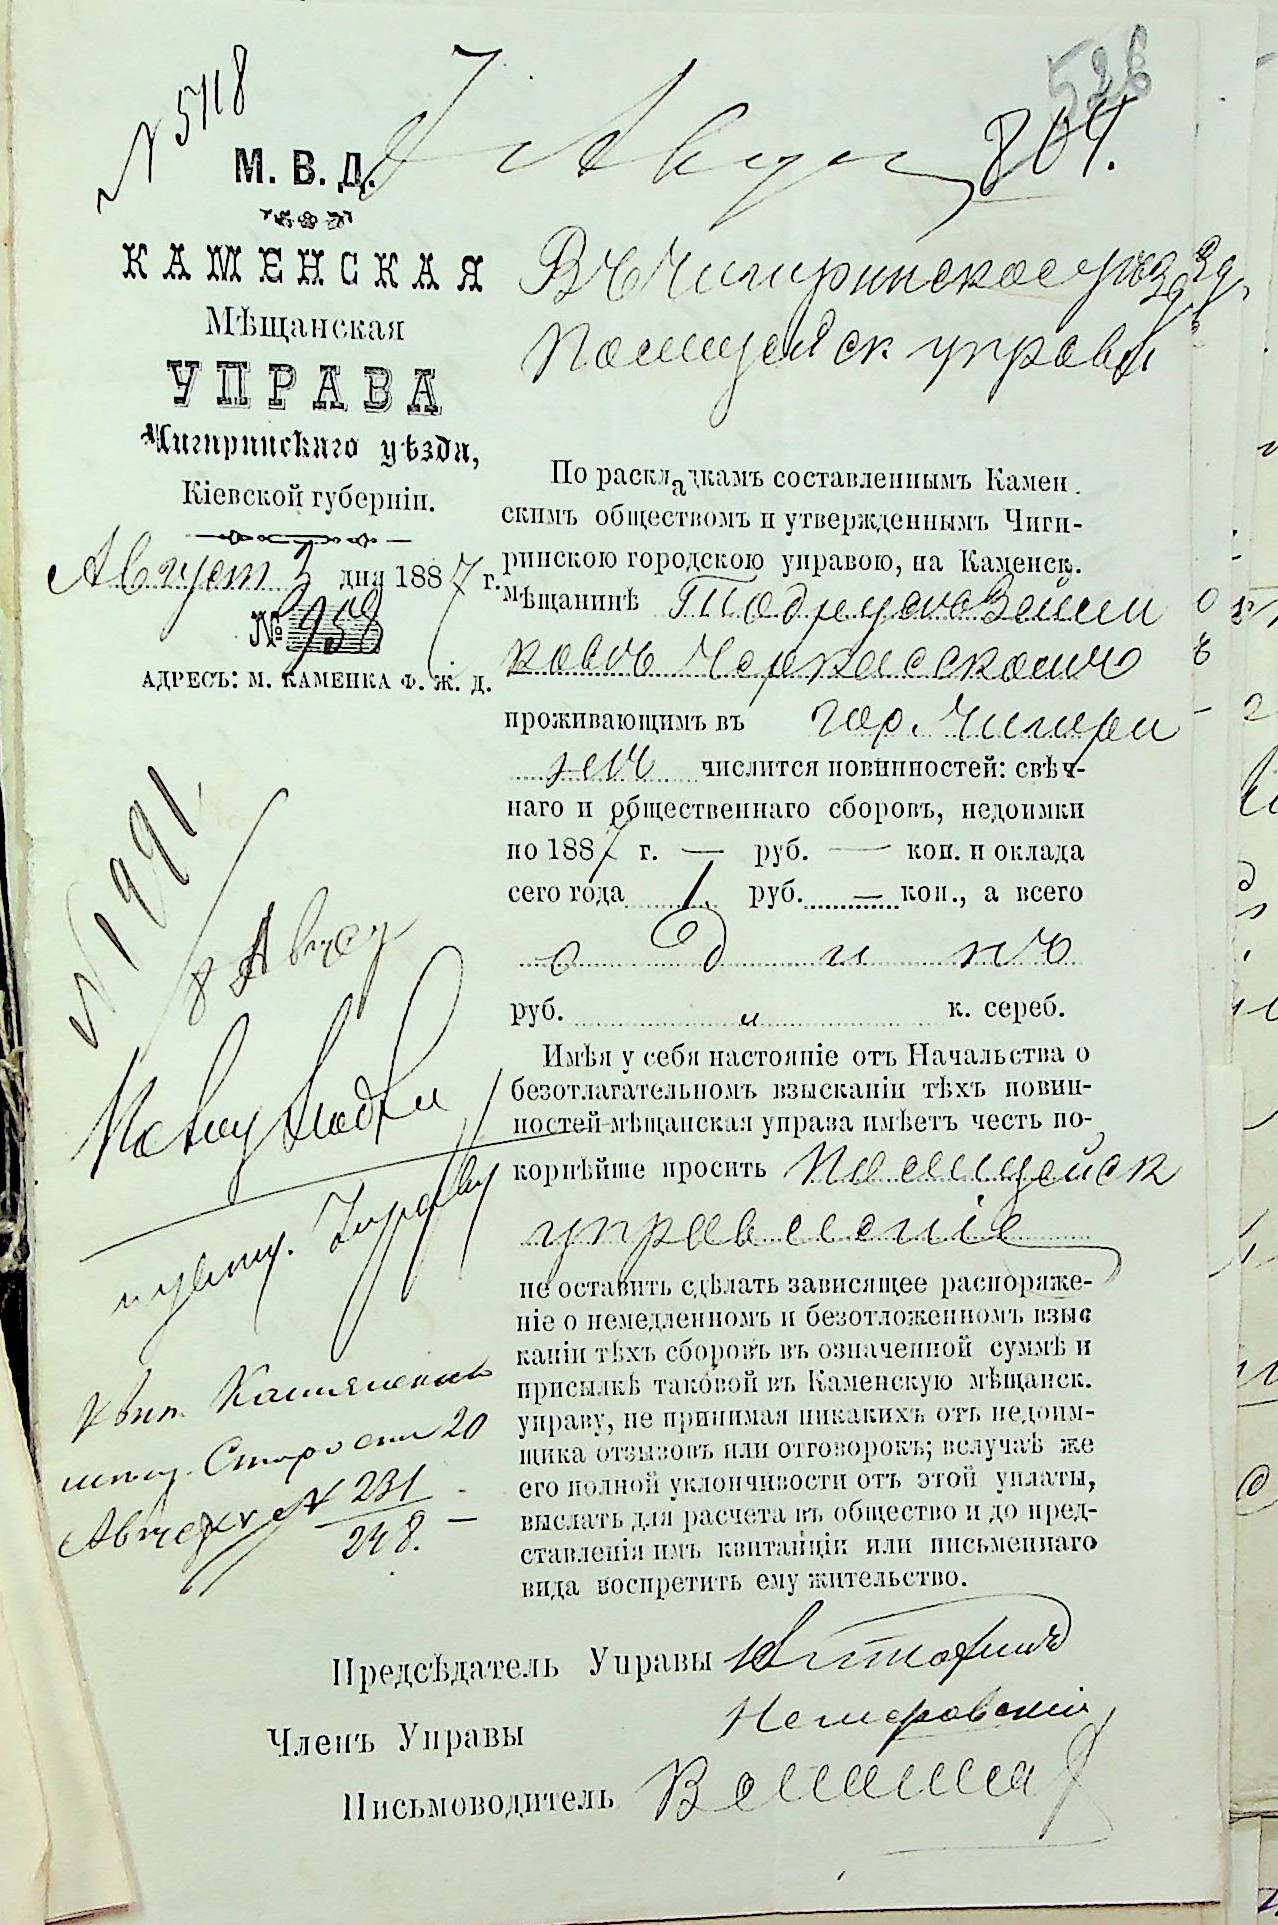 526
№ 5118
7 Авгу 804.
М. В. Д.
КАМЕНСКАЯ
Мѣщанская
УПРАВА
Чигиринскаго уѣзда,
Кіевской губерніи.
Август 3 дня 1887 г.
№ 958
АДРЕСЪ: М. КАМЕНКА Ф. Ж. Д.
Въ Чигиринское уѣзд
Полицейск управл
По раскладкамъ составленнымъ Камен
скимъ обществомъ и утвержденнымъ Чиги-
ринскою городскою управою, на Каменск.
мѣщанинѣ
Черкасскомъ
проживающимъ въ гор. Чигири
нѣ числится повинностей: свѣч-
наго и общественнаго сборовъ, недоимки
по 1887 г. — руб. — коп. и оклада
сего года 1 руб. — коп., а всего
одинъ
руб. к. сереб.
Имѣя у себя настояніе отъ Начальства о
безотлагательномъ взысканіи тѣхъ повин-
ностей-мѣщанская управа имѣетъ честь по-
корнѣйше просить Полицейск
управленіе
не оставить сдѣлать зависящее распоряже-
ніе о немедленномъ и безотложенномъ взыс
каніи тѣхъ сборовъ въ означенной суммѣ и
присылкѣ таковой въ Каменскую мѣщанск.
управу, не принимая никакихъ отъ недоим-
щика отзывовъ или отговорокъ; вслучаѣ же
его полной уклончивости отъ этой уплаты,
выслать для расчета въ общество и до пред-
ставленія имъ квитанціи или письменнаго
вида воспретить ему жительство.
№ 1991.
8 Авгу
Квит.
Старости 20
Августа № 231
248.
Предсѣдатель Управы
Членъ Управы Немеровскій
Письмоводитель